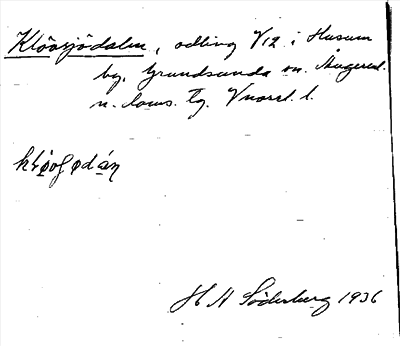 Klöösjödalen, odling V12 i Husum
by, Grundsunda sn. Ångerml.
n. doms. tg. Vnorrl. l.
H A Söderberg 1936